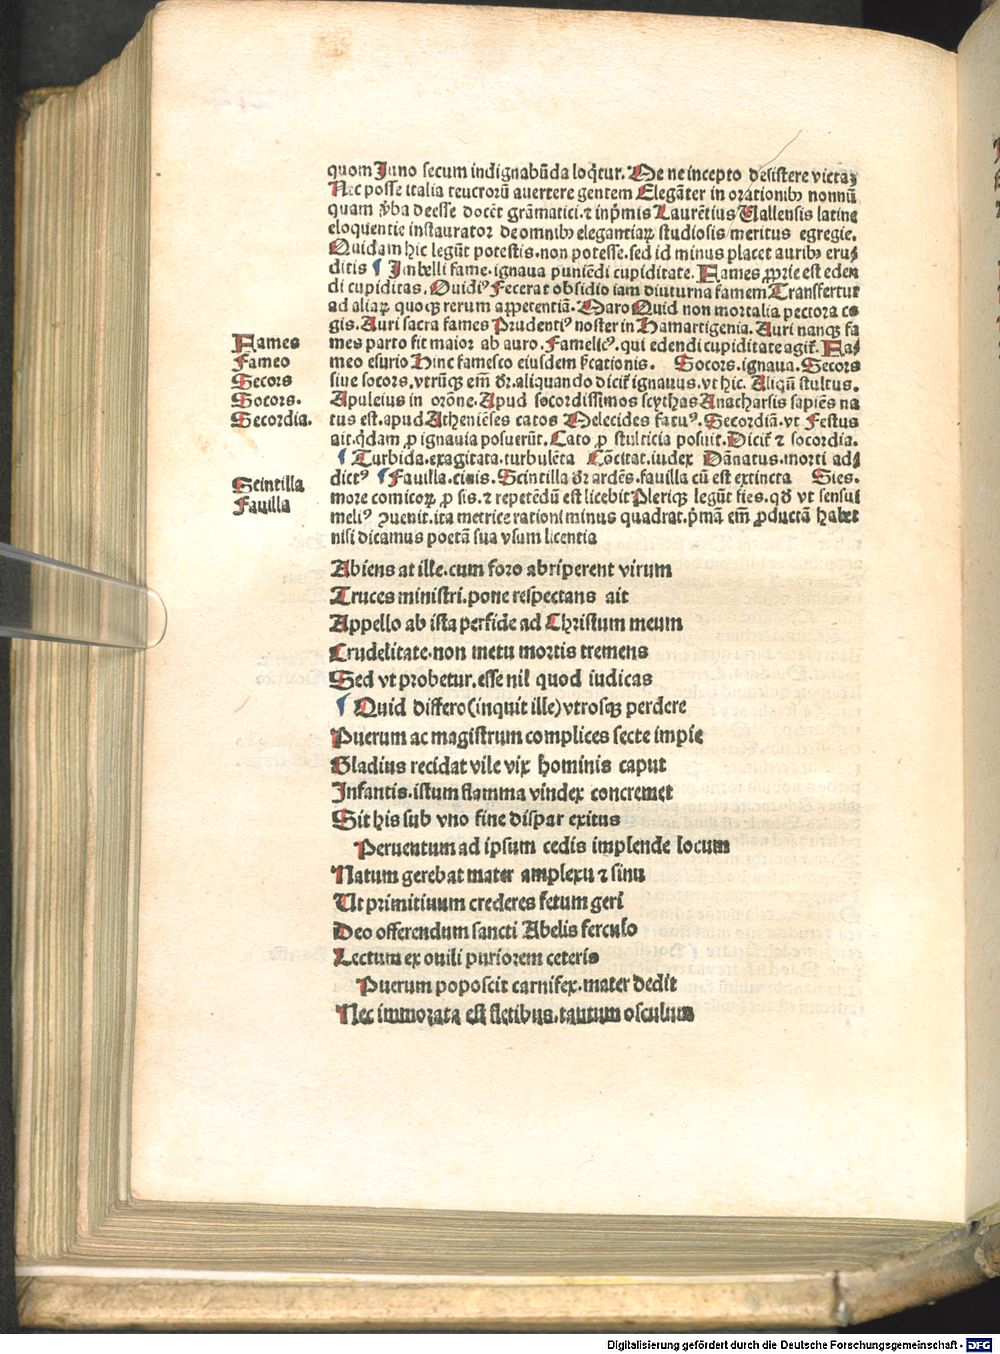 quom Juno secum indignabūda loq̄tur. Me ne incepto desistere victaɜ
Nec posse italia teucrorū avertere gentem Elegāter in orationibꝫ nonnū
quam v̓ba deesse docēt grāmatici. ⁊ inp̓mis Laurētius Vallensis latine
eloquentie instaurator de omnibꝫ elegantiaꝝ studiosis meritus egregie.
Quidam hic legūt potestis. non potesse. sed id minus placet auribꝫ eru⸗
ditis ¶ Imbelli fame. ignaua puniēdi cupiditate. Fames ꝓprie est eden
di cupiditas. Ouidiꝰ Fecerat obsidio iam diuturna famem Transfertur
ad aliaꝝ quoqꝫ rerum appetentiā. Maro Quid non mortalia pectora co
gis. Auri sacra fames Prudentiꝰ noster in Hamartigenia. Auri nanqꝫ fa
mes parto fit maior ab auro. Famelicꝰ. qui edendi cupiditate agit̄. Fa⸗
meo esurio Hinc famesco eiusdem s̓cationis. Socors. ignaua. Secors
siue socors. vtrūqꝫ em̄ dr̄. aliquando dicit̄ ignauus. vt hic. Aliqn̄ stultus.
Apuleius in orōne. Apud socordissimos scythas Anacharsis sapiēs na
tus est. apud Atheniēses catos Melecides fatuꝰ. Secordiā. vt Festus
ait. q̄dam ꝓ ignauia posuerūt. Cato ꝓ stulticia posuit. Dicit̄ ⁊ socordia.
¶ Turbida. exagitata. turbulēta Cōcitat. iudex Dānatus. morti ad⸗
dictꝰ ¶ Fauilla. cinis. Scintilla dr̄ ardēs. fauilla cū est extincta Sies.
more comicoꝝ ꝓ sis. ⁊ repetēdū est licebit Pleriqꝫ legūt fies. qd̄ vt sensui
meliꝰ ꝯuenit. ita metrice rationi minus quadrat. p̓mā em̄ ꝓductā habet
nisi dicamus poetā sua vsum licentia
Fames
Fameo
Secors
Socors.
Secordia.
Scintilla
Fauilla
Abiens at ille. cum foro abriperent virum
Truces ministri. pone respectans ait
Appello ab ista perfide ad Christum meum
Crudelitate. non metu mortis tremens
Sed vt probetur. esse nil quod iudicas
¶ Quid differo (inquit ille) vtrosqꝫ perdere
Puerum ac magistrum complices secte impie
Gladius recidat vile vix hominis caput
Infantis. istum flamma vindex concremet
Sit his sub vno fine dispar exitus
Peruentum ad ipsum cedis implende locum
Natum gerebat mater amplexu ⁊ sinu
Ut primitiuum crederes fetum geri
Deo offerendum sancti Abelis ferculo
Lectum ex ouili puriorem ceteris
Puerum poposcit carnifex. mater dedit
Nec immorata est fletibus. tantum osculum
Digitalisierung gefördert durch die Deutsche Forschungsgemeinschaft - DFG